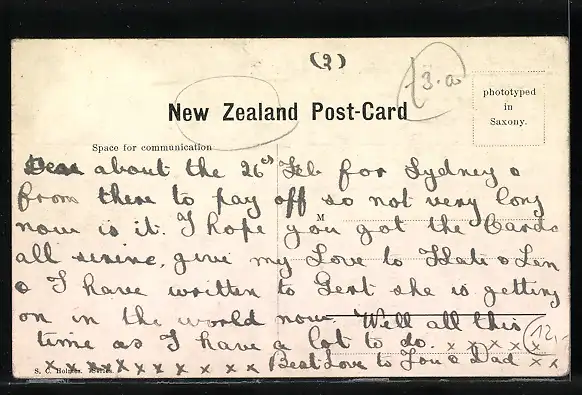 (2)
3.00
New Zealand Post-Card
phototyped
in
Saxony.
Space for communication
about the 26th Feb for Sydney &
from there to pay off so not very long
now is it. I hope you got the Cards
M
all serine, give my Love to Kate & Len
& I have written to Gert she is getting
on in the world now. Well all this
time as I have a lot to do. x x x x x
12,-
x x x x x x x x x x x x Best Love to You & Dad x x
S. C.